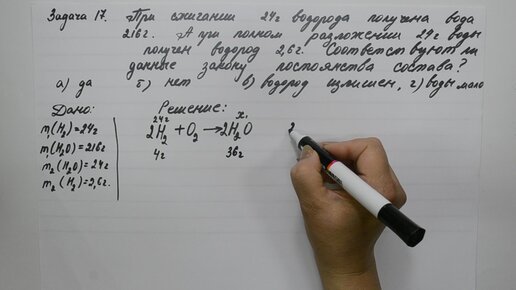 Задача 17. При сжигании 24г водорода получена вода
216г. А при полном разложении 24г воды
получен водород 2,6г. Соответствуют ли
данные закону постоянства состава?
а) да б) нет в) водород излишен, г) воды мало
Дано:
m₁(H₂)=24г
m₁(H₂O)=216г
m₂(H₂O)=24г
m₂(H₂)=2,6г.
Решение:
24г x
2H₂ + O₂ → 2H₂O
4г 36г
2